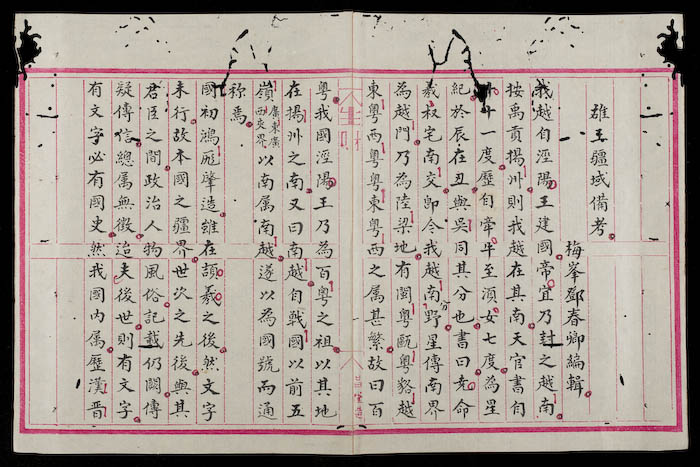 雄王疆域備考
梅峯鄧春卿編輯
我越自涇陽王建國帝宜乃封之越南
按禹貢揚州則我越在其南天官書自
斗十一度歷自牽牛至湏女七度為星
紀於辰在丑與吳同其分也書曰堯命
羲叔宅南交即今我越南分野星傳南界
為越門乃為陸梁地有閩粤甌粤貉越
東粤西粤粤東粤西之属甚繁故曰百
粤我國涇陽王乃為百粤之祖以其地
在揚州之南又曰南越自戰國以前五
嶺廣東廣西夾界以南属南越遂以為國號而通
称焉
國初鴻厖肇造維在頡羲之後然文字
未行故本國之疆界世次之先後與其
君臣之間政治人物風俗記載仍闕傳
疑傳信總属無徵夫後世則有文字
有文字必有國史然我國内属歷漢晋